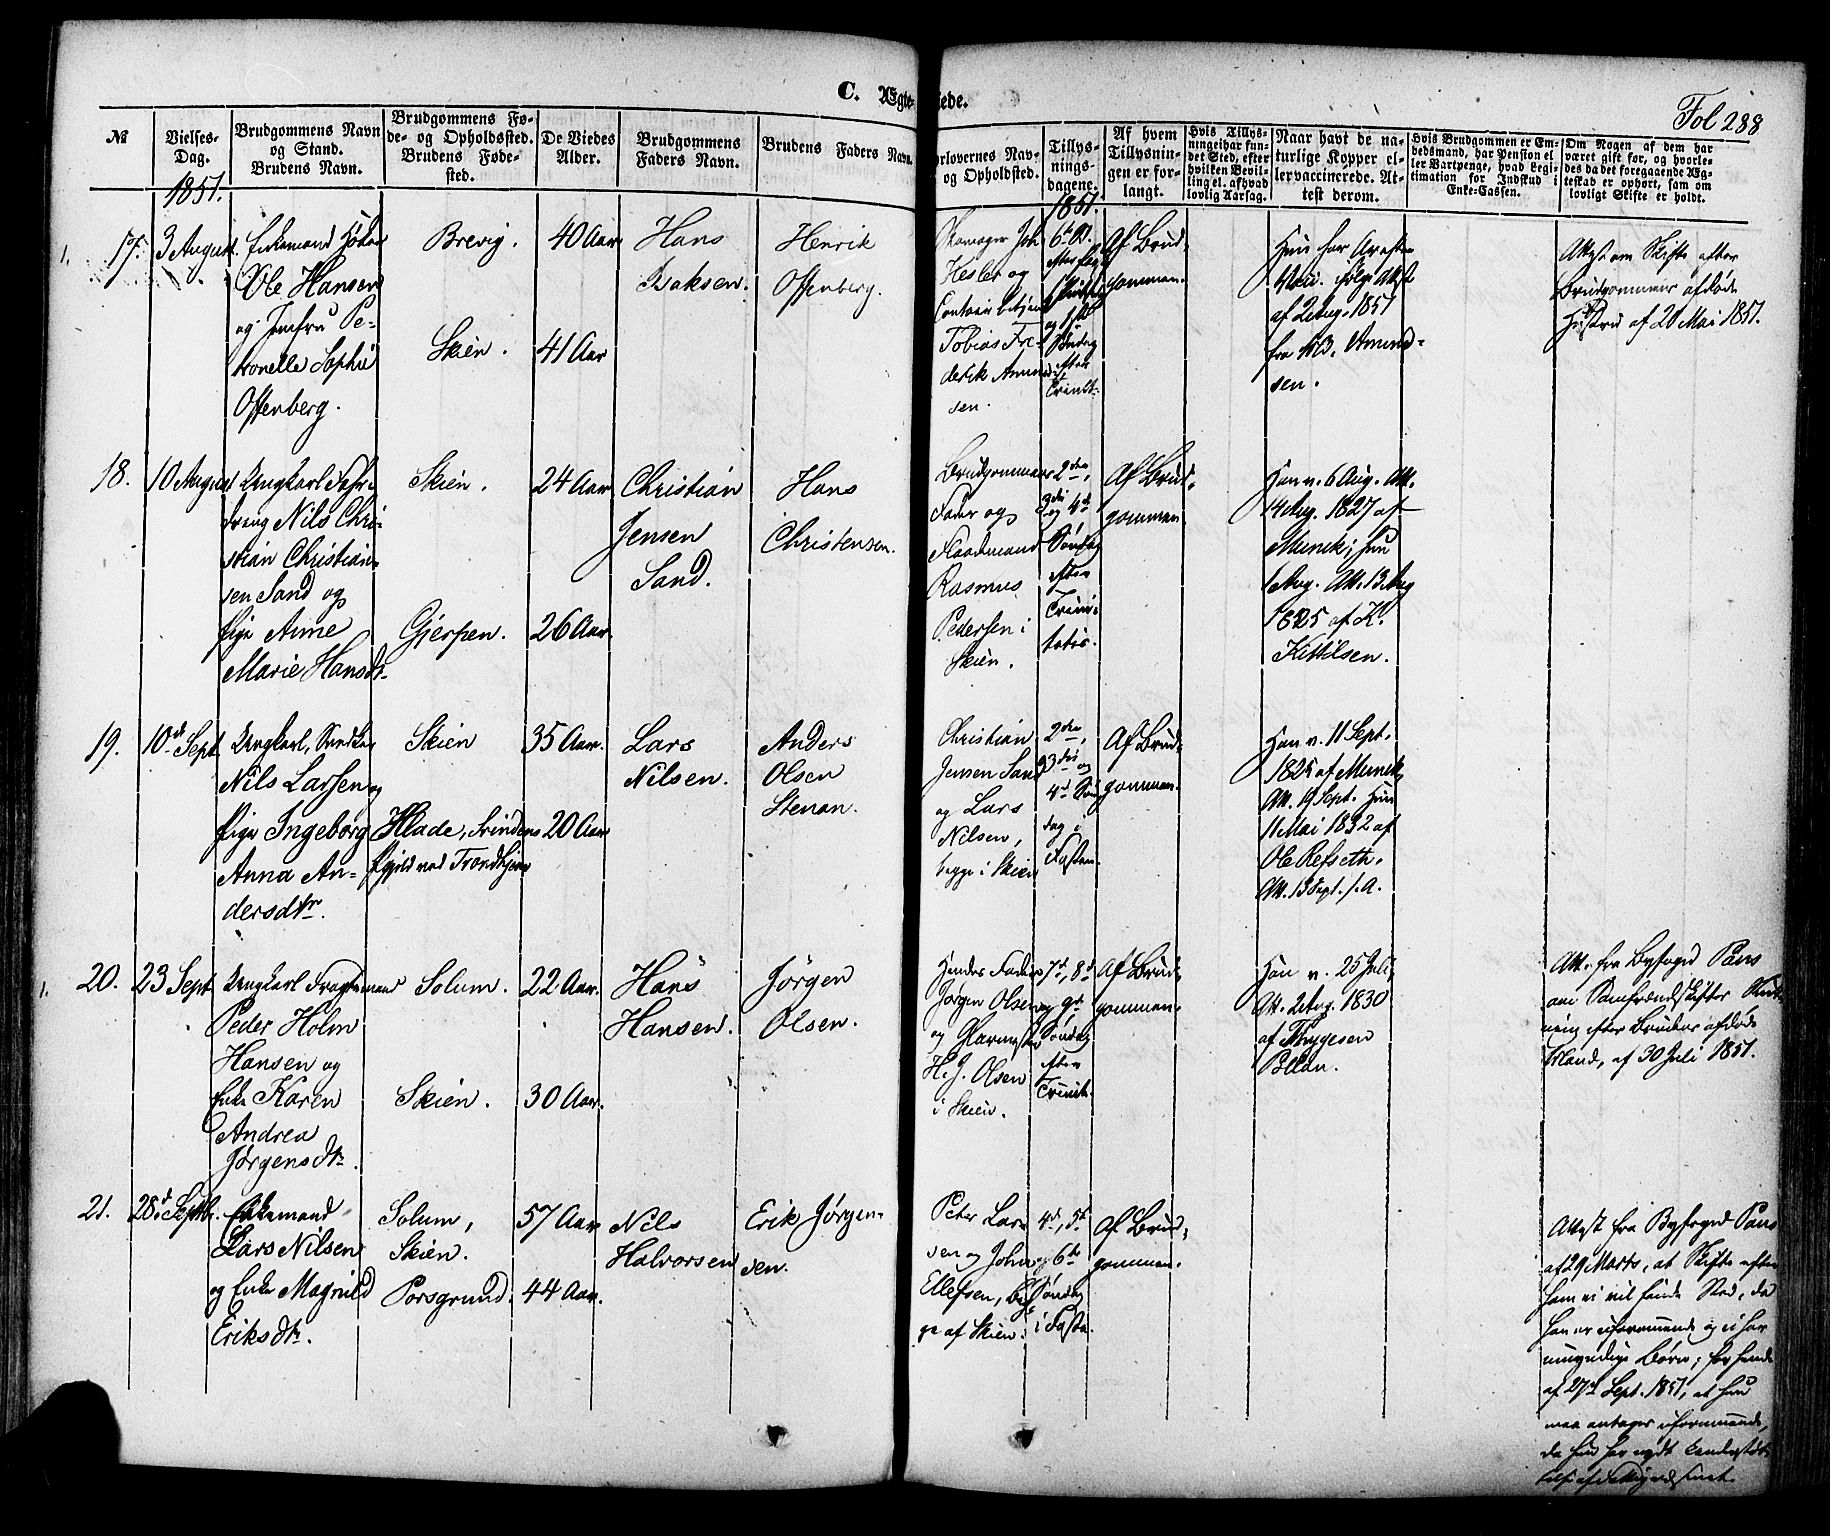 C. Ægteviede.
Fol 288
№
Vielses-
Dag.
Brudgommens Navn
og Stand.
Brudens Navn.
Brudgommens Fø-
de- og Opholdssted.
Brudens Føde-
sted.
De Viedes
Alder.
Brudgommens
Faders Navn.
Brudens Faders Navn.
Forlovernes Navn
og Opholdsted.
Tillys-
nings-
dagene.
Af hvem
Tillysnin-
gen er for-
langt.
Hvis Tillys-
ningei har fun-
det Sted, efter
hvilken Bevil-
ling el. afhvad
lovlig Aarsag.
Naar havt de na-
turlige Kopper el-
ler vaccinerede. At-
test derom.
Hvis Brudgommen er Em-
bedsmand, har Pension el-
ler Vartpenge, hvad Legi-
timation for Indskud i
Enke-Cassen.
Om Nogen af dem har
været gift for, og hvorle-
des da det foregaaende Æg-
teskab er ophørt, sam om
lovligt Skifte er holdt.
1851.
1851.
1.
17.
3 August
Enkemand
Ole Hansen
og Jomfru Pe-
tronelle Sophie
Offenberg.
Brevig.
Skien.
40 Aar
41 Aar
Hans
Baksen.
Henrik
Offenberg.
Hesler og
Tobias Fre-
derik Amund-
sen.
6te
og
Søndag
efter
Trinit.
Af Brud-
gommen.
Hun har
af 2 Aug. 1851
fra Amund-
sen.
Attest om Skifte efter
Brudgommens afdøde
Hustru af 20 Mai 1851.
18.
10 August
Ungkarl
dreng Nils Chri-
stian Christian-
sen Sand og
Pige Anne
Marie Hansdt.
Skien.
Gjerpen.
24 Aar
26 Aar
Christian
Jensen
Sand.
Hans
Christensen.
Brudgommens
Fader og
Flaadmand
Rasmus
Pedersen i
Skien.
2den,
3die og 4de
Søndag
efter
Trini-
tatis.
Af Brud-
gommen
Han v. 6 Aug. Att.
14 Aug. 1827 af
Munk; hun
1 Aug. Att. 13 Aug
1825 af K.
Kittilsen.
19.
10de Sept.
Ungkarl,
Nils Larsen og
Pige Ingeborg
Anna An-
dersdtr.
Skien
Hlade, Trindens
Fogd ved Trondhjem
35 Aar.
20 Aar
Lars
Nilsen.
Anders
Olsen
Stenan.
Christian
Jensen Sand
og Lars
Nilsen,
begge i Skien
2den,
3die og
4de Søn
dag i
Fasten.
Af Brud-
gommen.
Han v. 11 Sept.
1825 af Munk,
Att. 19 Sept. Hun
11 Mai 1832 af
Ole Refseth.
Att. 13 Sept. s. A.
1.
20.
23 Sept
Ungkarl Fragtemand
Peder Holm
Hansen og
Enke Karen
Andrea
Jørgensdtr.
Solum.
Skien.
22 Aar.
30 Aar.
Hans
Hansen.
Jørgen
Olsen.
Hendes Fader
Jørgen Olsen
og Glarmester
H. J. Olsen
i Skien.
7de, 8de
og 9de
Søndag
efter
Trinit.
Af Brud-
gommen.
Han v. 25 Juli,
Att. 2 Aug. 1830
af Thygesen
Att. fra Byfoged Paus
om Samfrændeskiftes Slut-
ning efter Brudens afdøde
Mand, af 30 Juli 1851.
21.
28de Septbr.
Enkemand
Lars Nilsen
og Enke Magnild
Eriksdtr.
Solum,
Skien.
Porsgrund.
57 Aar
44 Aar.
Nils
Halvorsen
Erik Jørgen-
sen.
Peter Lar-
sen og John
Ellefsen, beg-
ge af Skien.
4de, 5te
og 6te
Søndag
i Faste.
Af Brud-
gommen.
Attest fra Byfoged Paus
af 29 Marts, at Skifte efter
ham ei vil finde Sted, da
han er uformuende og ei har
umyndige Børn; for hende
af 27de Sept. 1851, at hun
maa antages uformuende,
da hun har nydt Understøt-
telse af Fattigvæsenet.